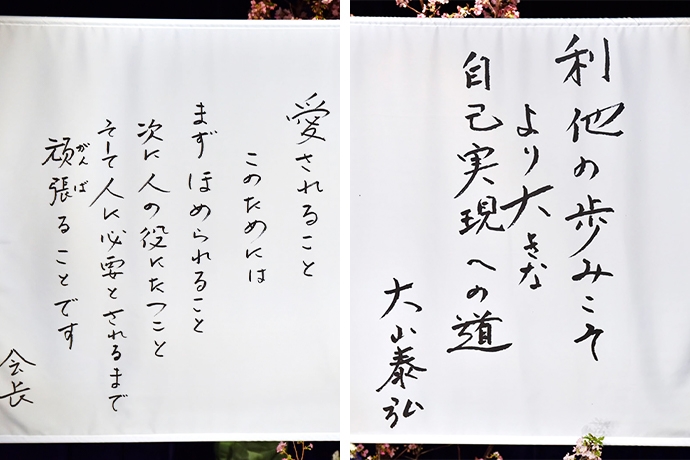 愛されること
このためには
まずほめられること
次に人の役にたつこと
そして人に必要とされるまで
頑張ることです
がんば
会長
利他の歩みこそ
より大きな
自己実現への道
大山泰弘